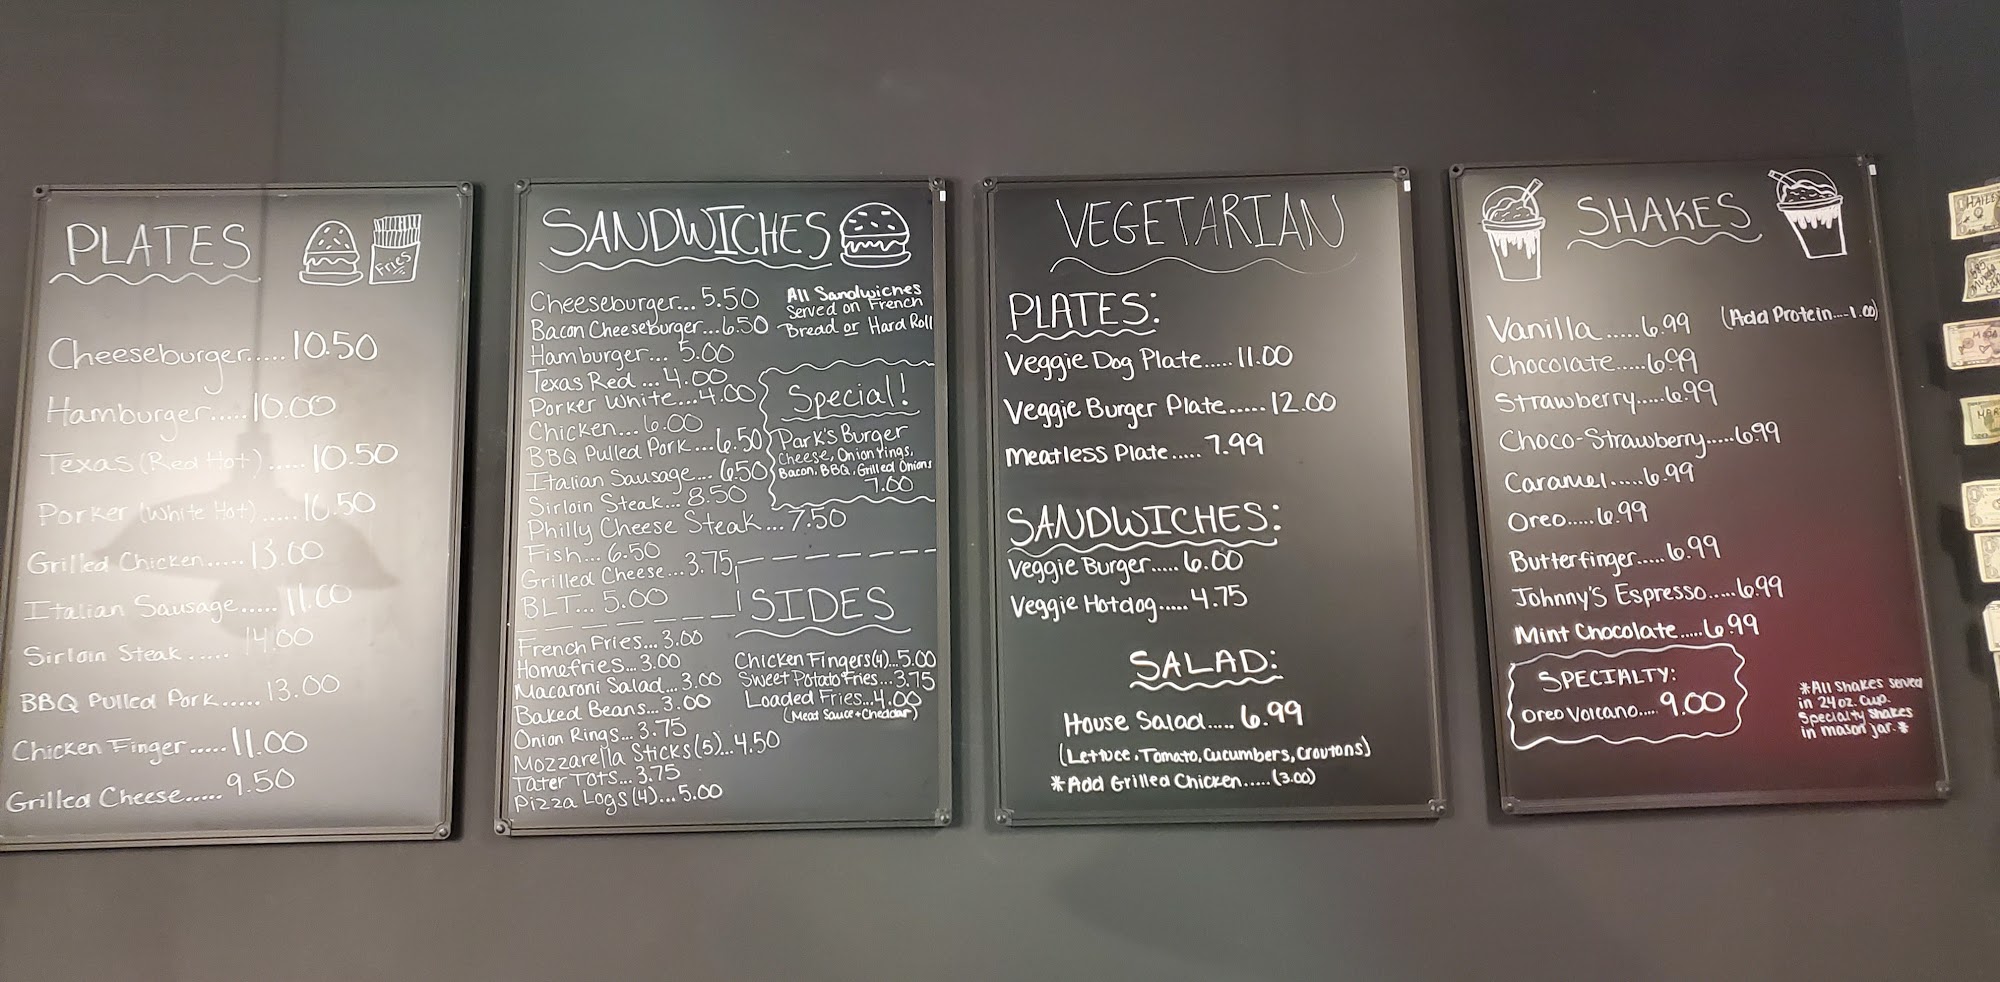 PLATES
Fries
Cheeseburger.....10.50
Hamburger.....10.00
Texas (Red Hot).....10.50
Porker (White Hot).....10.50
Grilled Chicken.....13.00
Italian Sausage.....11.00
Sirloin Steak......14.00
BBQ Pulled Pork......13.00
Chicken Finger.....11.00
Grilled Cheese.....9.50
SANDWICHES
Cheeseburger...5.50
Bacon Cheeseburger...6.50
Hamburger...5.00
Texas Red...4.00
Porker White...4.00
Chicken...6.00
BBQ Pulled Pork...6.50
Italian Sausage...6.50
Sirloin Steak...8.50
Philly Cheese Steak...7.50
Fish...6.50
Grilled Cheese...3.75
BLT...5.00
All Sandwiches
Served on French
Bread or Hard Roll
Special!
Park's Burger
Cheese, Onion rings,
Bacon, BBQ, Grilled Onions
7.00
SIDES
French Fries...3.00
Homefries...3.00
Macaroni Salad...3.00
Baked Beans...3.00
Onion Rings...3.75
Mozzarella Sticks(5)...4.50
Tater Tots...3.75
Pizza Logs(4)...5.00
Chicken Fingers(4)...5.00
Sweet Potato Fries...3.75
Loaded Fries...4.00
(Meat Sauce + Cheddar)
VEGETARIAN
PLATES:
Veggie Dog Plate.....11.00
Veggie Burger Plate......12.00
Meatless Plate.....7.99
SANDWICHES:
Veggie Burger.....6.00
Veggie Hotdog.....4.75
SALAD:
House Salad.....6.99
(Lettuce, Tomato, Cucumbers, Croutons)
*Add Grilled Chicken.....(3.00)
SHAKES
Vanilla.....6.99 (Add Protein....1.00)
Chocolate.....6.99
Strawberry.....6.99
Choco-Strawberry.....6.99
Caramel.....6.99
Oreo.....6.99
Butterfinger.....6.99
Johnny's Espresso.....6.99
Mint Chocolate.....6.99
SPECIALTY:
Oreo Volcano....9.00
*All Shakes served
in 24oz. cup.
Specialty Shakes
in mason jar.*